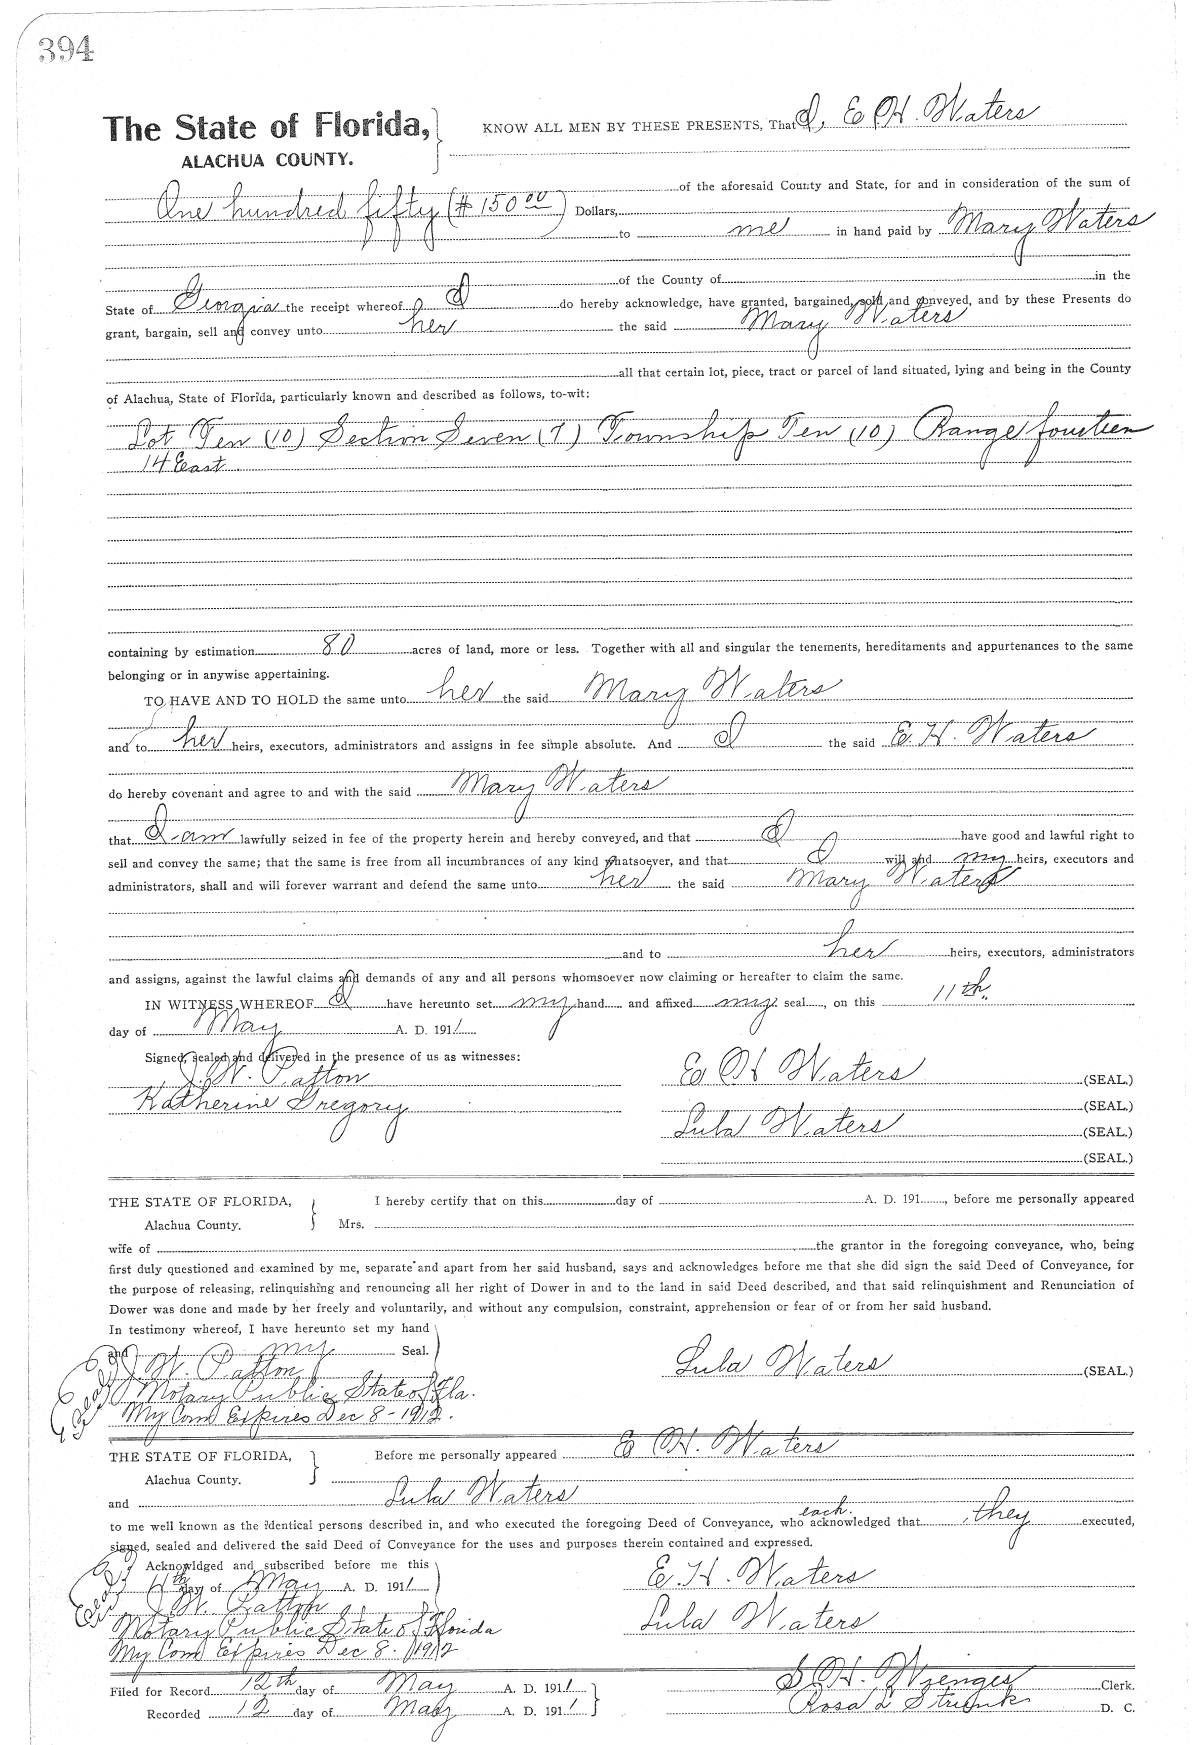 394
The State of Florida,
ALACHUA COUNTY.
KNOW ALL MEN BY THESE PRESENTS, That I, E. H. Waters
of the aforesaid County and State, for and in consideration of the sum of
One hundred fifty (# 150 00) Dollars,
to me in hand paid by Mary Waters
of the County of in the
State of Georgia the receipt whereof I do hereby acknowledge, have granted, bargained, sold and conveyed, and by these Presents do
grant, bargain, sell and convey unto her the said Mary Waters
all that certain lot, piece, tract or parcel of land situated, lying and being in the County
of Alachua, State of Florida, particularly known and described as follows, to-wit:
Lot Ten (10) Section Seven (7) Township Ten (10) Range fourteen
14 East
containing by estimation 80 acres of land, more or less. Together with all and singular the tenements, hereditaments and appurtenances to the same
belonging or in anywise appertaining.
TO HAVE AND TO HOLD the same unto her the said Mary Waters
and to her heirs, executors, administrators and assigns in fee simple absolute. And I the said E. H. Waters
do hereby covenant and agree to and with the said Mary Waters
that I am lawfully seized in fee of the property herein and hereby conveyed, and that I have good and lawful right to
sell and convey the same; that the same is free from all incumbrances of any kind whatsoever, and that I will and my heirs, executors and
administrators, shall and will forever warrant and defend the same unto her the said Mary Waters
and to her heirs, executors, administrators
and assigns, against the lawful claims and demands of any and all persons whomsoever now claiming or hereafter to claim the same.
IN WITNESS WHEREOF I have hereunto set my hand and affixed my seal, on this 11th.
day of May A. D. 1911
Signed, sealed and delivered in the presence of us as witnesses:
J. W. Patton
Katherine Gregory
E H Waters (SEAL.)
(SEAL.)
Lula Waters (SEAL.)
(SEAL.)
THE STATE OF FLORIDA,
Alachua County.
I hereby certify that on this day of A. D. 191, before me personally appeared
Mrs.
wife of the grantor in the foregoing conveyance, who, being
first duly questioned and examined by me, separate and apart from her said husband, says and acknowledges before me that she did sign the said Deed of Conveyance, for
the purpose of releasing, relinquishing and renouncing all her right of Dower in and to the land in said Deed described, and that said relinquishment and Renunciation of
Dower was done and made by her freely and voluntarily, and without any compulsion, constraint, apprehension or fear of or from her said husband.
In testimony whereof, I have hereunto set my hand
and my Seal.
(Seal) J. W. Patton
Notary Public State of Fla.
My Com Expires Dec 8-1912.
Lula Waters (SEAL.)
THE STATE OF FLORIDA,
Alachua County.
Before me personally appeared E H. Waters
and Lula Waters
to me well known as the identical persons described in, and who executed the foregoing Deed of Conveyance, who each. acknowledged that they executed,
signed, sealed and delivered the said Deed of Conveyance for the uses and purposes therein contained and expressed.
Acknowldged and subscribed before me this
11th day of May A. D. 1911
(Seal) J. W. Patton
Notary Public State of Florida
My Com Expires Dec 8. 1912
E. H. Waters
Lula Waters
Filed for Record 12th day of May A. D. 1911
Recorded 12 day of May A. D. 1911
S. H. Wienges Clerk.
Rosa L Strunk D. C.